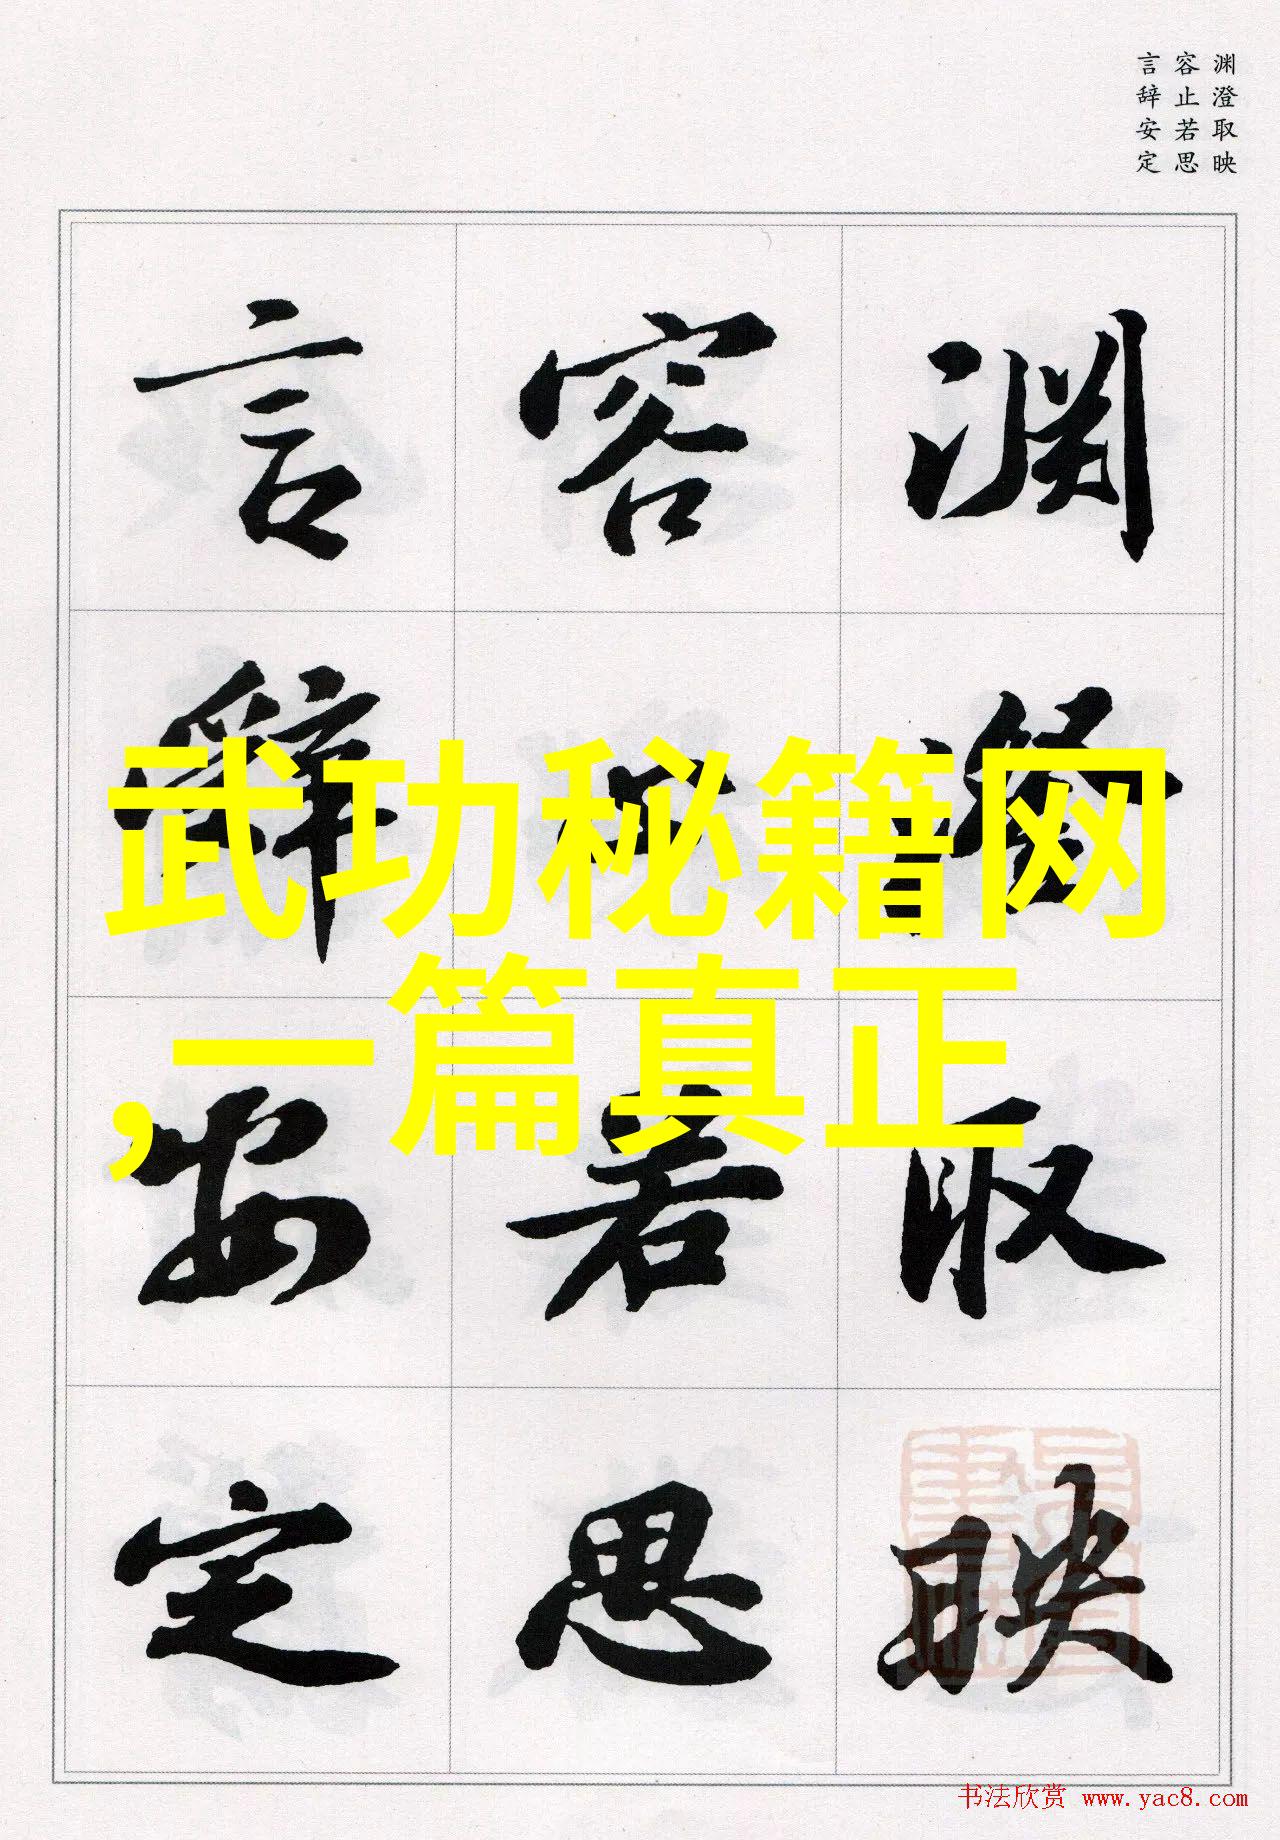 渊澄取映
容止若思
言辞安定
渊澄取映
容止若思
言辞安定
武功秘籍网
,一篇真正
书法欣赏 www.yac8.com